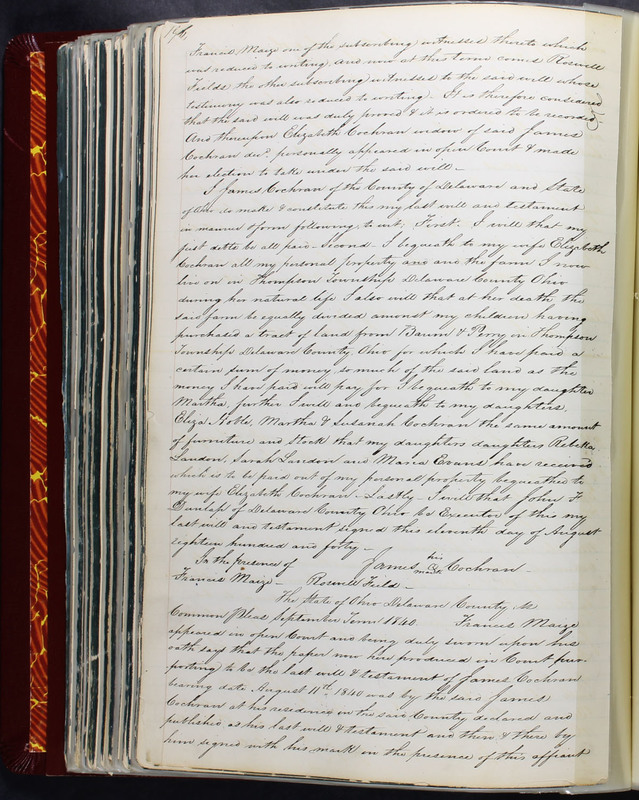 Francis Maize one of the subscribing witnesses thereto which
was reduced to writing and now at this term comes Roswell
Fields the other subscribing witnesses to the said will whose
testimony was also reduced to writing. It is therefore considered
that the said will was duly proved & it is ordered to be recorded
And thereupon Elizabeth Cochran widow of said James
Cochran decd. personally appeared in open Court & made
her election to take under the said will —
I James Cochran of the County of Delaware and State
of Ohio do make & constitute this my last will and testament
in manner & form following, to wit, First. I will that my
just debts be all paid - Second. I bequeath to my wife Elizabeth
Cochran all my personal property and and the farm I now
live on in Thompson Township Delaware County Ohio
during her natural life I also will that at her death the
said farm be equally divided amonst my children having
purchased a tract of land from & Perry in Thompson
Township Delaware County Ohio for which I have paid a
certain sum of money so much of the said land as the
money I han paid will pay for I bequeath to my daughter
Martha, further I will and bequeath to my daughters
Eliza Noble, Martha & Susanah Cochran the same amount
of furniture and stock that my daughters daughters Rebecka
Landon Sarah Landon and Maria Evans have received
which is to be paid out of my personal property bequeathed to
my wife Elizabeth Cochran - Lastly - I will that John F
Dunlap of Delaware County Ohio be Executor of this my
last will and testament signed this eleventh day of August
eighteen hundred and forty —
In the presence of James his mark Cochran —
Francis Maize — Roswell Field
The State of Ohio Delaware County Ss
Common Pleas September Term 1840. Francis Maize
appeared in open Court and being duly sworn upon his
oath says that the paper now here produced in Court pur-
porting to be the last will & testament of James Cochran
bearing date August 11th 1840 was by the said James
Cochran at his residence in the said County declared and
published as his last will & testament and then & there by
him signed with his mark in the presence of this affiant